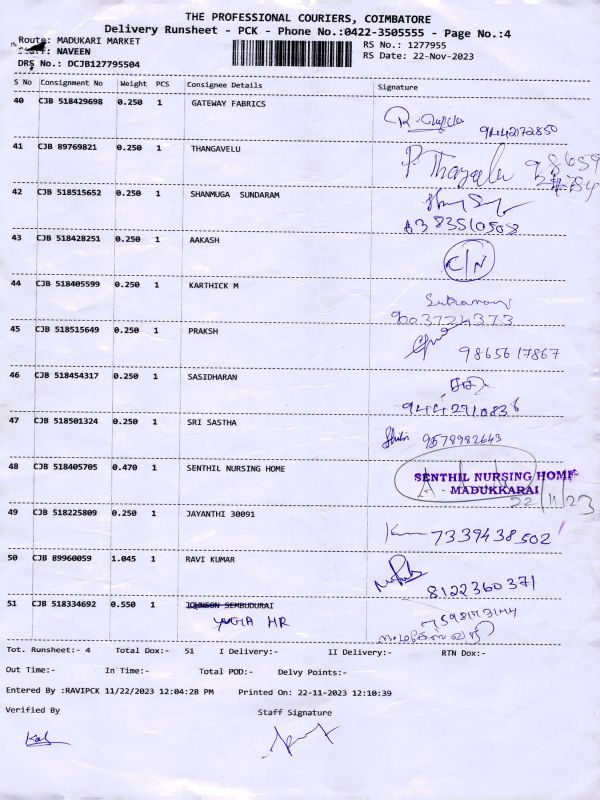 THE PROFESSIONAL COURIERS, COIMBATORE
Delivery Runsheet - PCK - Phone No.:0422-3505555 - Page No.:4
Route: MADUKARI MARKET
RS No.: 1277955
Staff: NAVEEN
RS Date: 22-Nov-2023
DRS No.: DCJB127795504
S No Consignment No Weight PCS Consignee Details Signature
40 CJB 518429698 0.250 1 GATEWAY FABRICS
9442172850
41 CJB 89769821 0.250 1 THANGAVELU
P Thangavelu
42 CJB 518515652 0.250 1 SHANMUGA SUNDARAM
6383510508
43 CJB 518428251 0.250 1 AAKASH C/N
44 CJB 518405599 0.250 1 KARTHICK M
9003724373
45 CJB 518515649 0.250 1 PRAKSH
9865617867
46 CJB 518454317 0.250 1 SASIDHARAN
9442710836
47 CJB 518501324 0.250 1 SRI SASTHA
9578982643
48 CJB 518405705 0.470 1 SENTHIL NURSING HOME
SENTHIL NURSING HOME
MADUKKARAI
22/11/23
49 CJB 518225809 0.250 1 JAYANTHI 30091
7339438502
50 CJB 89960059 1.045 1 RAVI KUMAR
8122360371
51 CJB 518334692 0.550 1 JOHNSON SEMBUDURAI
YUGA HR
Tot. Runsheet:- 4 Total Dox:- 51 I Delivery:- II Delivery:- RTN Dox:-
Out Time:- In Time:- Total POD:- Delvy Points:-
Entered By :RAVIPCK 11/22/2023 12:04:28 PM Printed On: 22-11-2023 12:10:39
Verified By Staff Signature